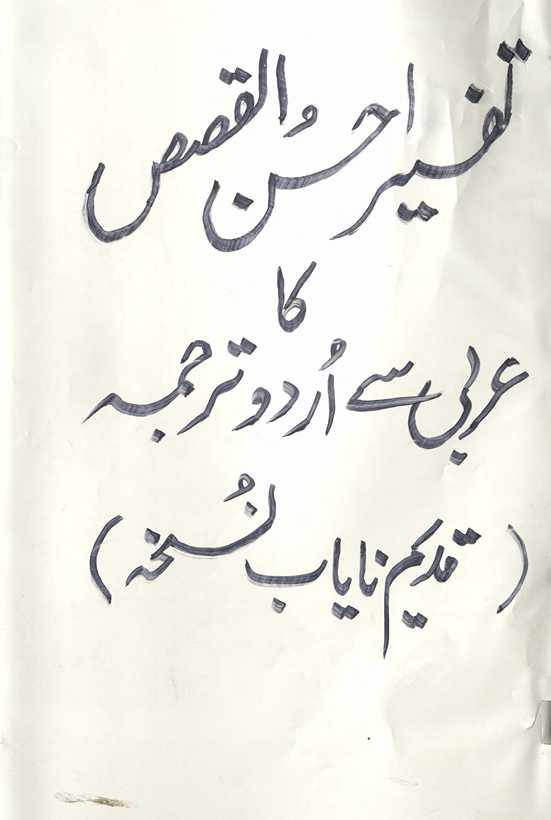 تفسیر احسن القصص
کا
عربی سے اُردو ترجمہ
(قدیم نایاب نُسخہ)